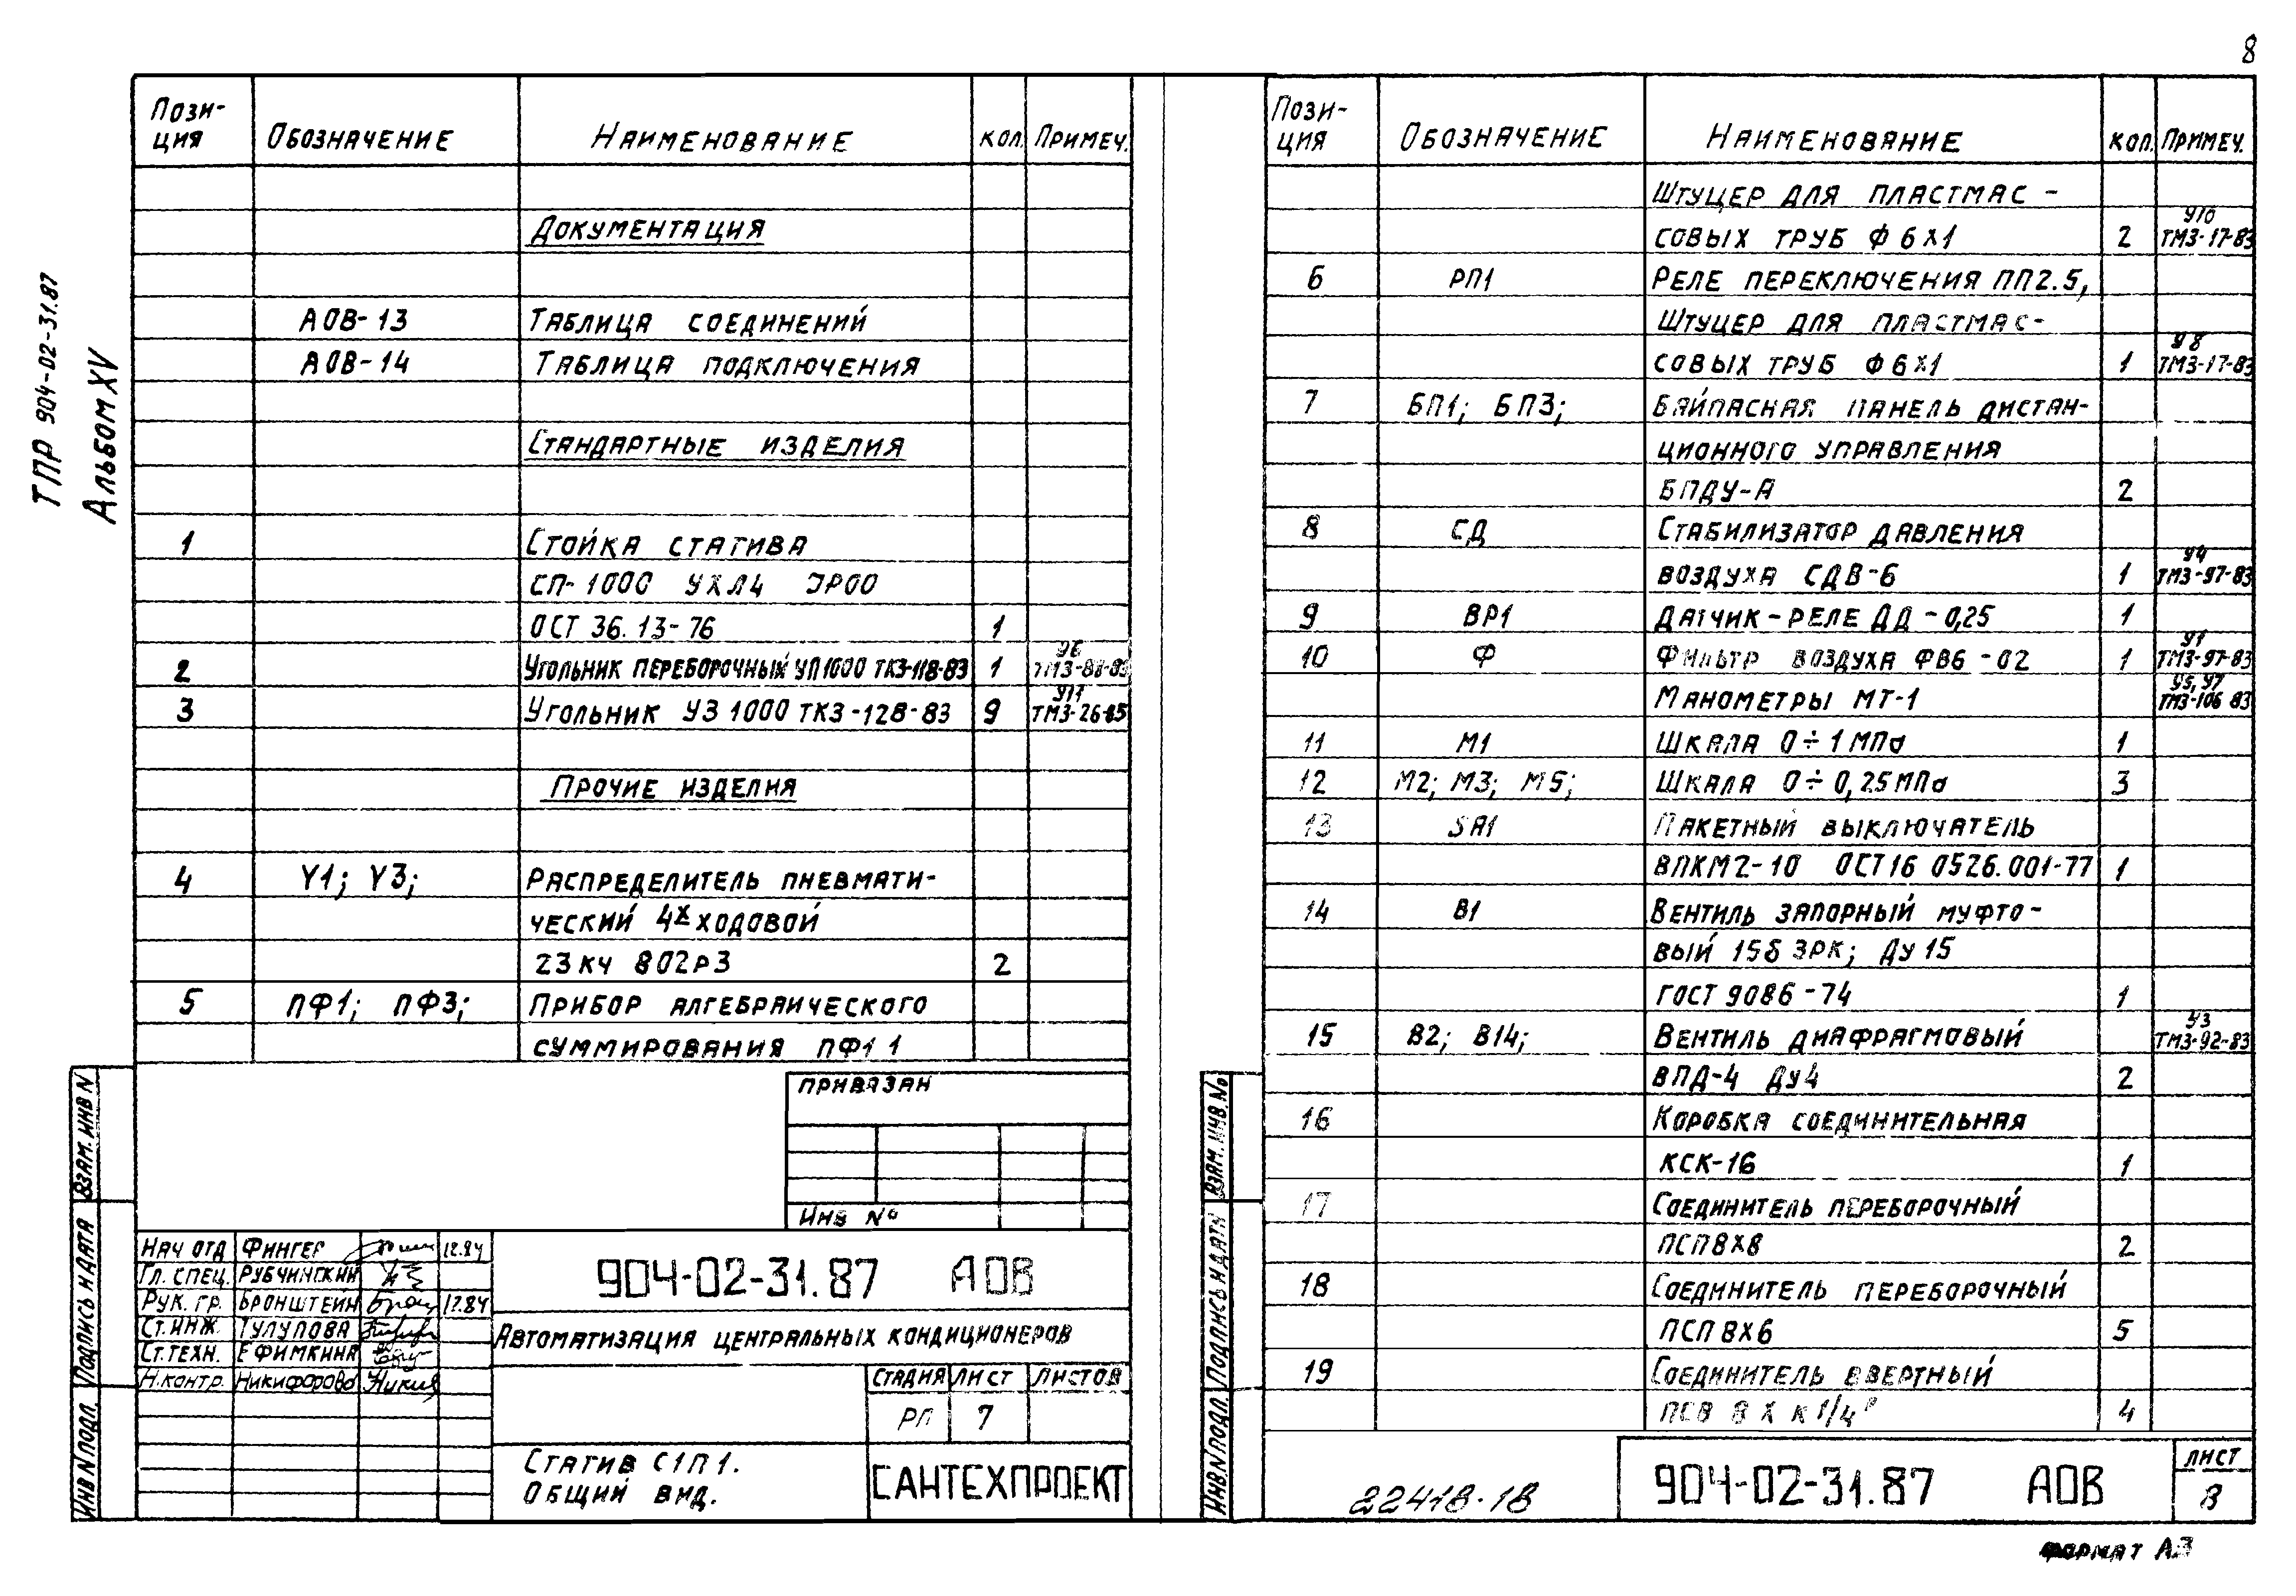 8
ТПР 904-02-31.87
Альбом XV
Пози-
ция
Обозначение
Наименование
кол.
Примеч.
Документация
АОВ-13 Таблица соединений
АОВ-14 Таблица подключения
Стандартные изделия
1 Стойка статива
СП-1000 УХЛ4 IP00
ОСТ 36.13-76 1
2 Угольник переборочный УП1000 ТК3-118-83 1 У6
3 Угольник УЗ 1000 ТК3-128-83 9 ТМ3-26-85
Прочие изделия
4 Y1; Y3; Распределитель пневмати-
ческий 4х ходовой
23кч 802р3 2
5 ПФ1; ПФ3; Прибор алгебраического
суммирования ПФ1 1
Привязан
Инв №
Нач отд Фингер 12.84
Гл. спец. Рубчинский
Рук. гр. Бронштейн 12.84
Ст. инж. Тулупова
Ст. техн. Ефимкина
Н. контр. Никифорова
904-02-31.87 АОВ
Автоматизация центральных кондиционеров
Стадия Лист Листов
РП 7
Статив С1П1.
Общий вид.
САНТЕХПРОЕКТ
Взам. инв N
Подпись и дата
Инв N подл.
Пози-
ция
Обозначение
Наименование
кол.
Примеч.
Штуцер для пластмас-
У10
совых труб Ф 6х1 2 ТМ3-17-83
6 РП1 Реле переключения ПП2.5,
Штуцер для пластмас-
У8
совых труб Ф 6х1 1 ТМ3-17-83
7 БП1; БП3; Байпасная панель дистан-
ционного управления
БПДУ-А 2
8 СД Стабилизатор давления
У4
воздуха СДВ-6 1 ТМ3-97-83
9 ВР1 Датчик-реле ДД-0,25 1
У1
10 Ф Фильтр воздуха ФВ6-02 1 ТМ3-97-83
У5, У7
Манометры МТ-1 ТМ3-106-83
11 М1 Шкала 0÷1 МПа 1
12 М2; М3; М5; Шкала 0÷0,25 МПа 3
13 SA1 Пакетный выключатель
ВПКМ2-10 ОСТ16 0526.001-77 1
14 В1 Вентиль запорный муфто-
вый 15б 3рк; Ду 15
ГОСТ 9086-74 1
У3
15 В2; В14; Вентиль диафрагмовый ТМ3-92-83
ВПД-4 Ду4 2
16 Коробка соединительная
КСК-16 1
17 Соединитель переборочный
ПСП8х8 2
18 Соединитель переборочный
ПСП 8х6 5
19 Соединитель ввертный
ПСВ 8 х К 1/4" 4
Взам. инв. №
Подпись и дата
Инв N подл.
22418-18
904-02-31.87 АОВ
Лист
8
Формат А3